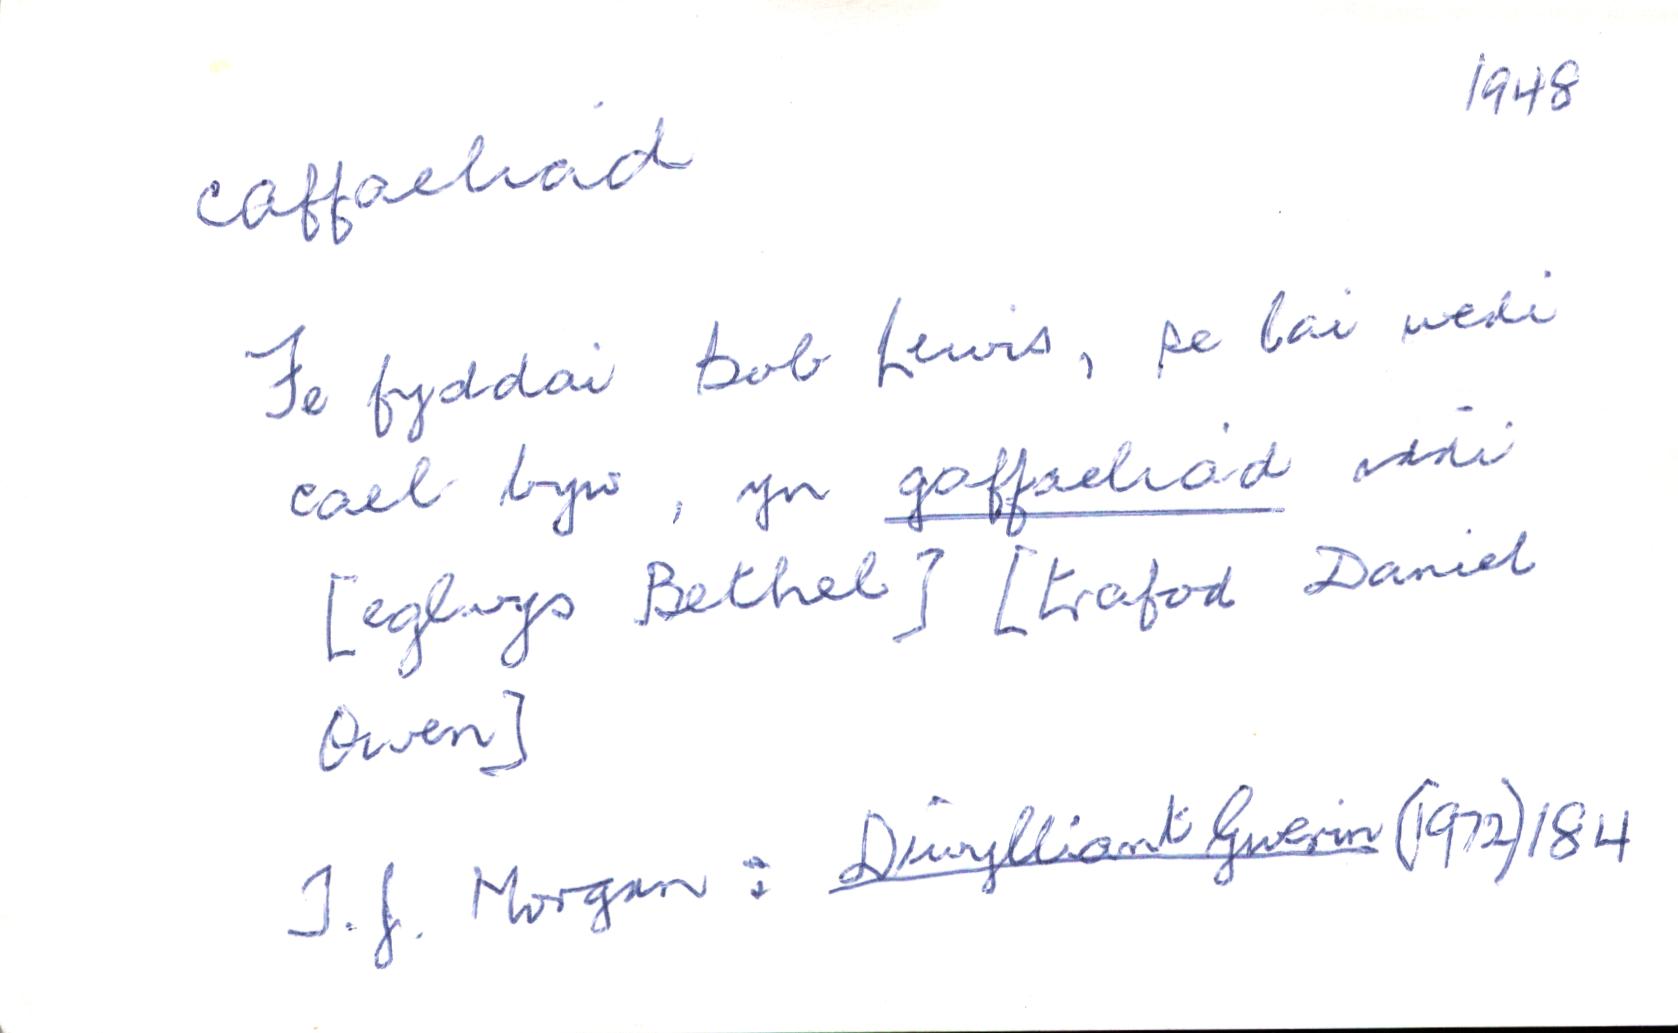 1948
caffaeliad
Fe fyddai Bob Lewis, pe bai wedi
cael byw, yn gaffaeliad iddi
[eglwys Bethel] [trafod Daniel
Owen]
T.J. Morgan : Diwylliant Gwerin (1972) 184